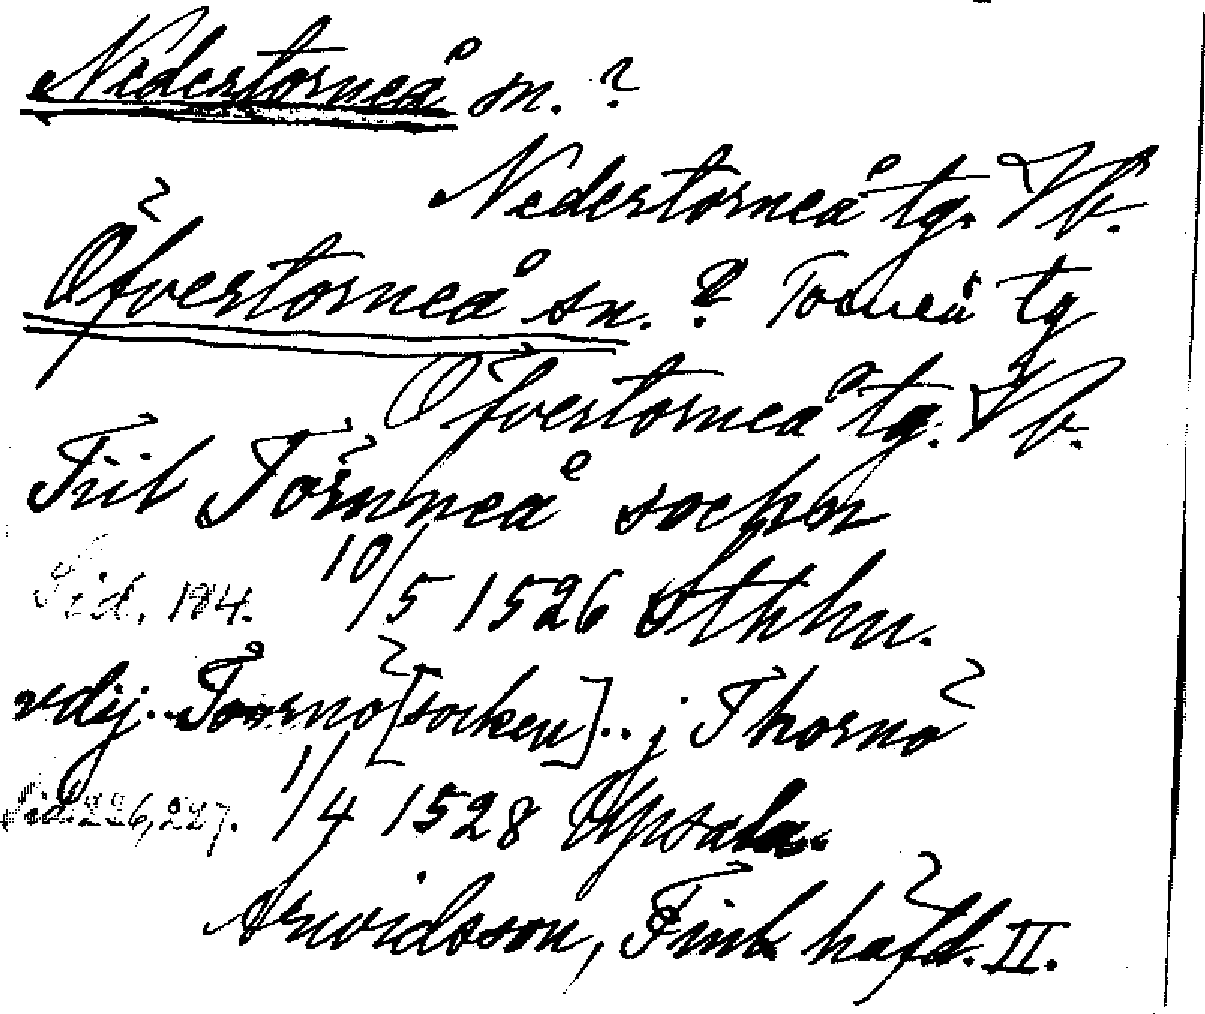 Nedertorneå sn. ?
Nedertorneå tg. Vb.
Öfvertorneå sn. ? Torneå tg
Öfvertorneå tg. Vb.
Tiil Törnneå socken
Sid. 184. 10/5 1526 Sthhn.
vdij.. Toornö [socken].. j Thornö
Sid. 226, 227. 1/4 1528 Upsala.
Arwidsson, Finl. häfd. II.